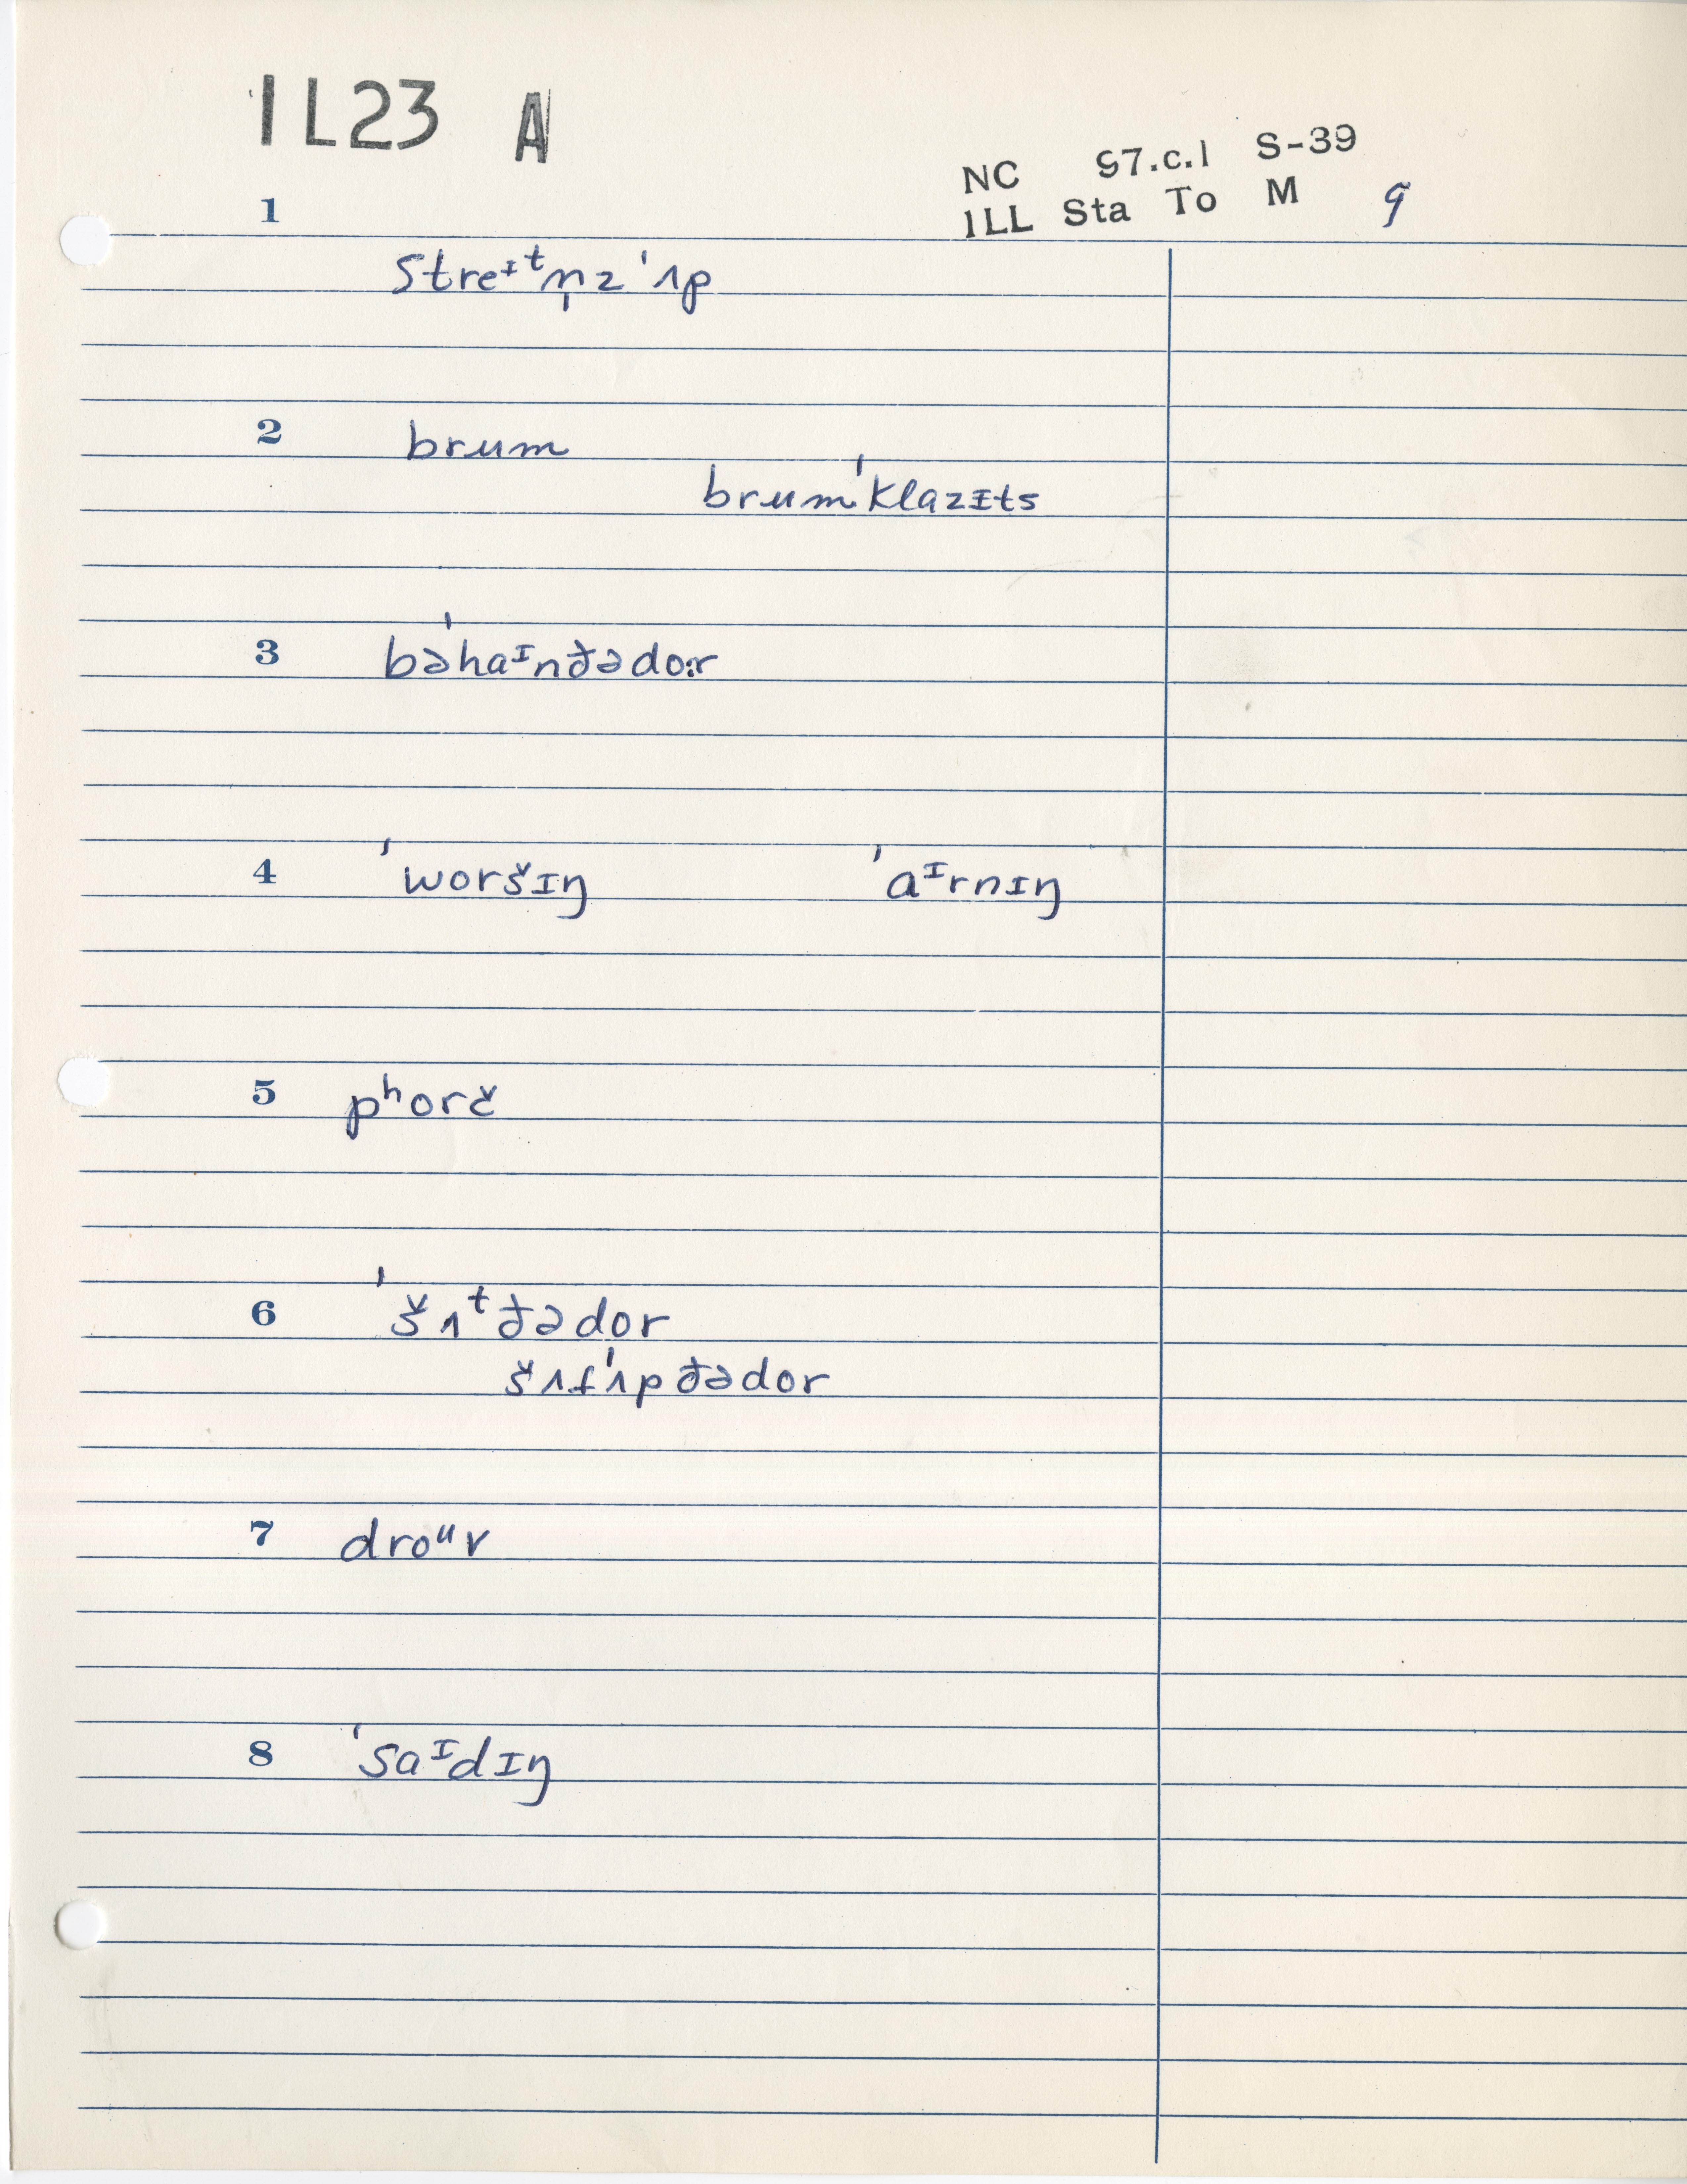 1L23 A
NC 97.c.1 S-39
ILL Sta To M 9
1
streᶦᵗn̩z'ʌp
2 brum
brum'klazɪts
3 bə'haᶦnðədo:r
4 'woršɪŋ 'aᶦrnɪŋ
5 pʰorč
6 'šʌᵗðədor
šʌf'ʌpðədor
7 droᵘv
8 'saᶦdɪŋ